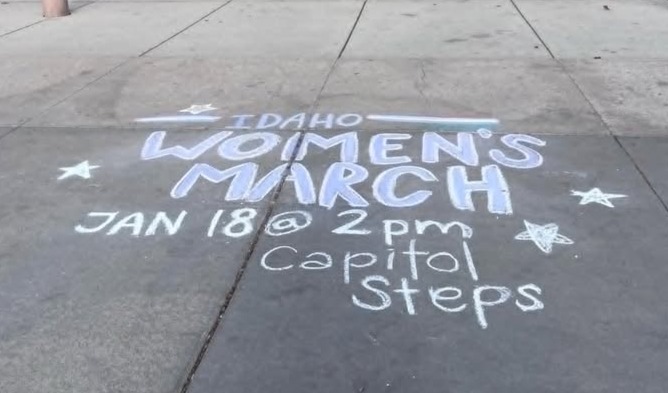 IDAHO
WOMEN'S
MARCH
JAN 18 @ 2pm
Capitol
Steps